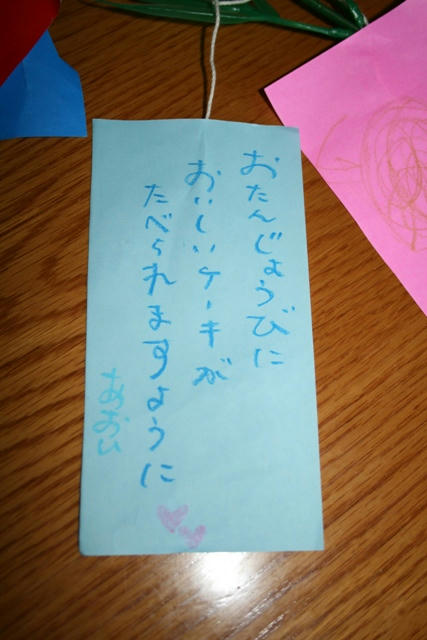 おたんじょうびに
おいしいケーキが
たべられますように
あおい